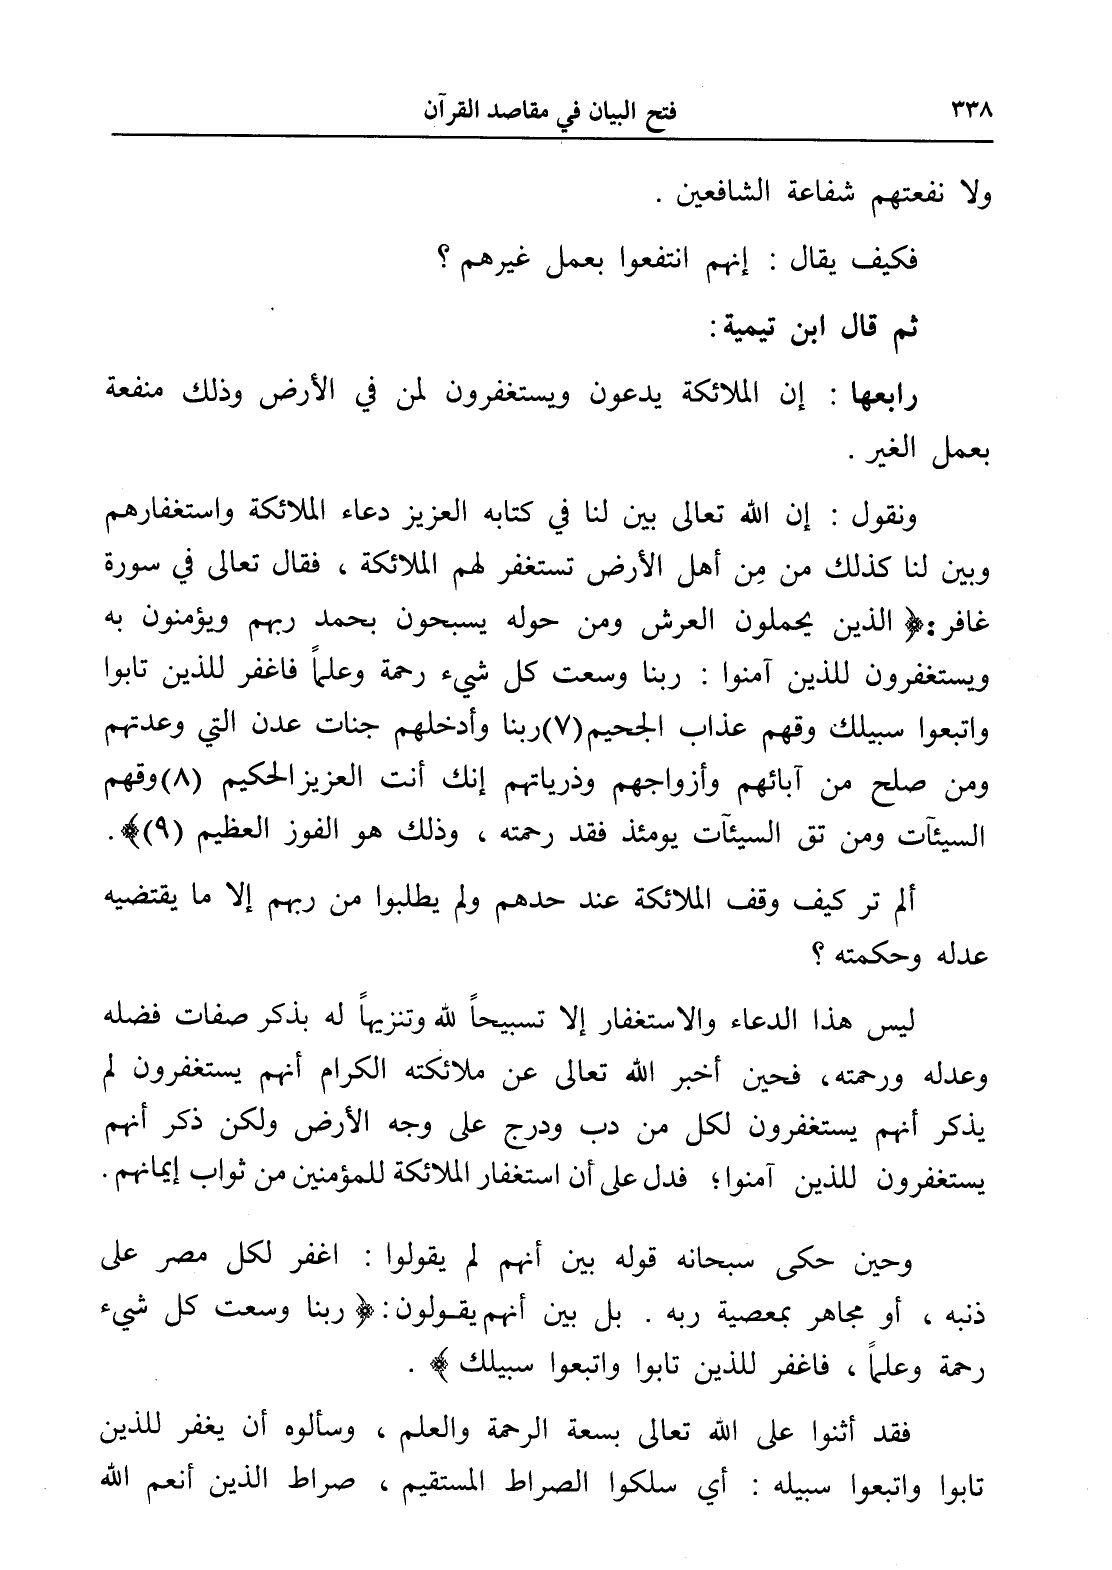 ٣٣٨ فتح البيان في مقاصد القرآن
ولا نفعتهم شفاعة الشافعين .
فكيف يقال : إنهم انتفعوا بعمل غيرهم ؟
ثم قال ابن تيمية :
رابعها : إن الملائكة يدعون ويستغفرون لمن في الأرض وذلك منفعة
بعمل الغير .
ونقول : إن الله تعالى بين لنا في كتابه العزيز دعاء الملائكة واستغفارهم
وبين لنا كذلك من مِن أهل الأرض تستغفر لهم الملائكة ، فقال تعالى في سورة
غافر :﴿ الذين يحملون العرش ومن حوله يسبحون بحمد ربهم ويؤمنون به
ويستغفرون للذين آمنوا : ربنا وسعت كل شيء رحمة وعلماً فاغفر للذين تابوا
واتبعوا سبيلك وقهم عذاب الجحيم(٧)ربنا وأدخلهم جنات عدن التي وعدتهم
ومن صلح من آبائهم وأزواجهم وذرياتهم إنك أنت العزيز الحكيم (٨)وقهم
السيئآت ومن تق السيئآت يومئذ فقد رحمته ، وذلك هو الفوز العظيم (٩)﴾ .
ألم تر كيف وقف الملائكة عند حدهم ولم يطلبوا من ربهم إلا ما يقتضيه
عدله وحكمته ؟
ليس هذا الدعاء والاستغفار إلا تسبيحاً لله وتنزيهاً له بذكر صفات فضله
وعدله ورحمته، فحين أخبر الله تعالى عن ملائكته الكرام أنهم يستغفرون لم
يذكر أنهم يستغفرون لكل من دب ودرج على وجه الأرض ولكن ذكر أنهم
يستغفرون للذين آمنوا؛ فدل على أن استغفار الملائكة للمؤمنين من ثواب إيمانهم .
وحين حكى سبحانه قوله بين أنهم لم يقولوا : اغفر لكل مصر على
ذنبه ، أو مجاهر بمعصية ربه . بل بين أنهم يقـولون :﴿ ربنا وسعت كل شيء
رحمة وعلماً ، فاغفر للذين تابوا واتبعوا سبيلك ﴾ .
فقد أثنوا على الله تعالى بسعة الرحمة والعلم ، وسألوه أن يغفر للذين
تابوا واتبعوا سبيله : أي سلكوا الصراط المستقيم ، صراط الذين أنعم الله